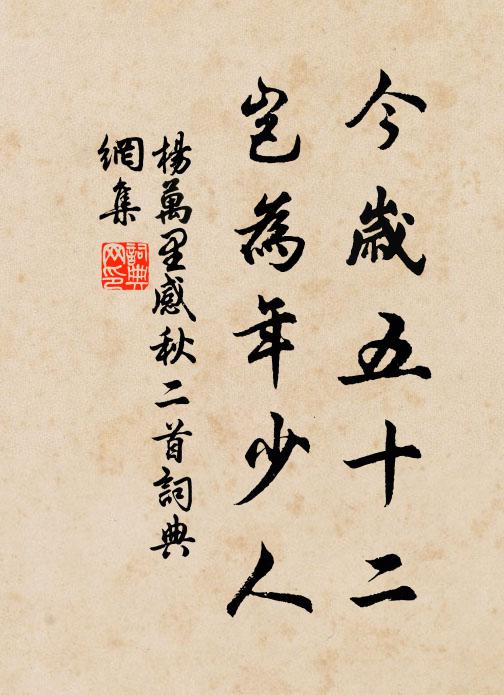 今歲五十二
豈為年少人
楊萬里感秋二首詞典
網集
詞典
網印